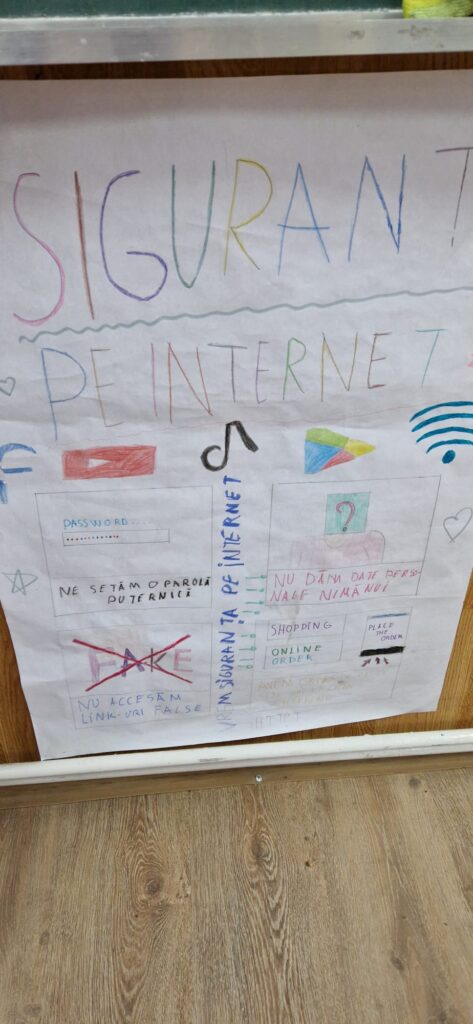 SIGURANȚ
PE INTERNET
PASSWORD...
NE SETĂM O PAROLĂ
PUTERNICĂ
VREM SIGURANȚA PE INTERNET
?
NU DĂM DATE PERSO-
NALE NIMĂNUI
FAKE
NU ACCESĂM
LINK-URI FALSE
SHOPPING
ONLINE
ORDER
PLACE
THE
ORDER